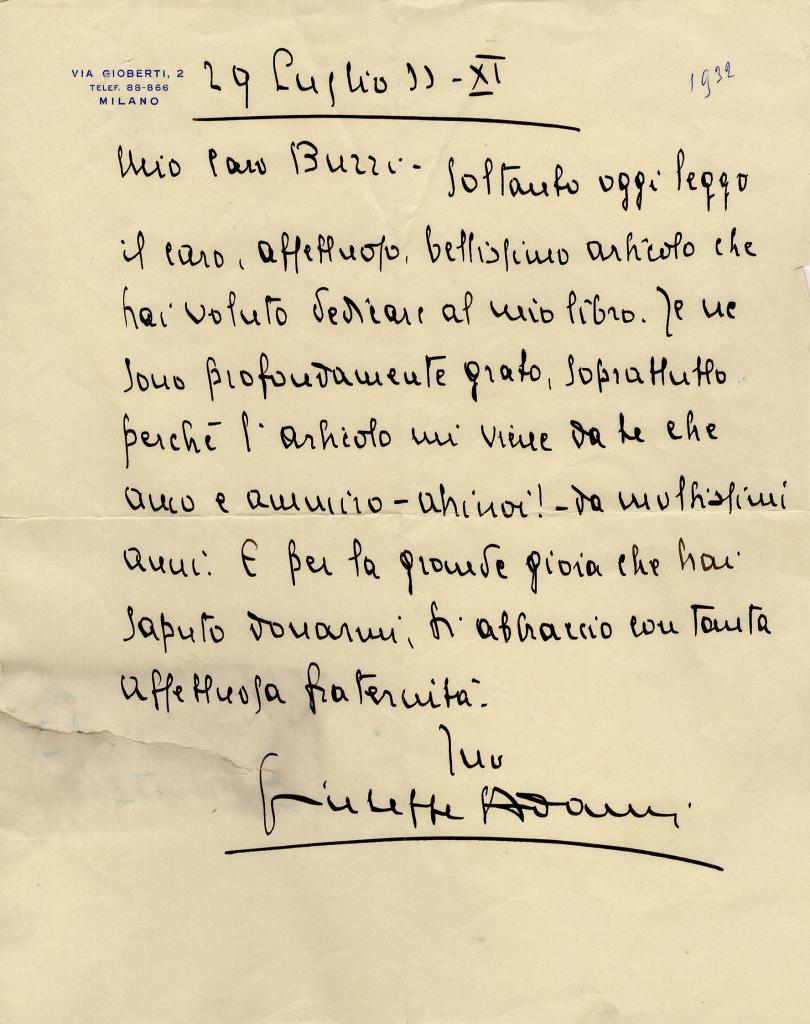 VIA GIOBERTI, 2
TELEF. 88-866
MILANO
29 Luglio 33 - XI
1932
Mio caro Buzzi - Soltanto oggi leggo
il caro, affettuoso, bellissimo articolo che
hai voluto dedicare al mio libro. Te ne
sono profondamente grato, soprattutto
perchè l'articolo mi viene da te che
amo e ammiro - ahinoi! - da moltissimi
anni. E per la grande gioia che hai
saputo donarmi, ti abbraccio con tanta
affettuosa fraternità.
Tuo
Giuseppe Adami